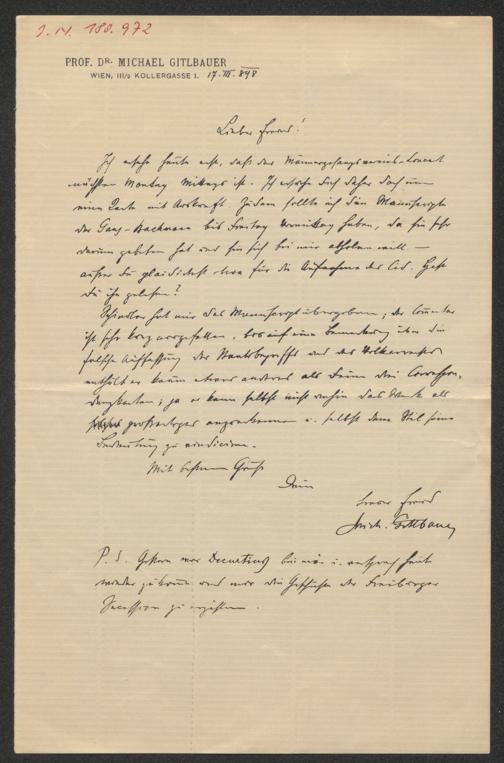 I.N. 188.972
PROF. DR. MICHAEL GITLBAUER
WIEN, III/2 KOLLERGASSE 1. 17. III. 898
Lieber Freund!
Ich ersehe heute erst, daß das Männergesangverein-Concert
nächsten Montag Mittags ist. Ich ersuche Dich daher doch um
eine Karte mit Auskunft. Zudem sollte ich das Manuscript
der Bachmann bis Freitag Vormittag haben, da sie sehr
darum gebeten hat und sie sich bei mir abholen will —
außer Du plaidirst für die Aufnahme des Cid. Hast
Du ihn gelesen?
Schindler hat mir das Manuscript übergeben; der
ist sehr kurz ausgefallen, bis auf eine Bemerkung über die
falsche Auffassung des Staatsbegriffs und des
enthält er kaum etwas anderes als Deine drei Correspon-
denzkarten; ja er kann selbst nicht umhin das Werk als
großartiges anzuerkennen u. selbst dem Stil seine
Bedeutung zu vindiciren.
Mit bestem Gruß
Dein
treuer Freund
Mich. Gitlbauer
P. S. Gestern war Decurtins bei mir u. versprach heute
wieder zu kommen und mir die Geschichte der Freiburger
Secession zu erzählen.